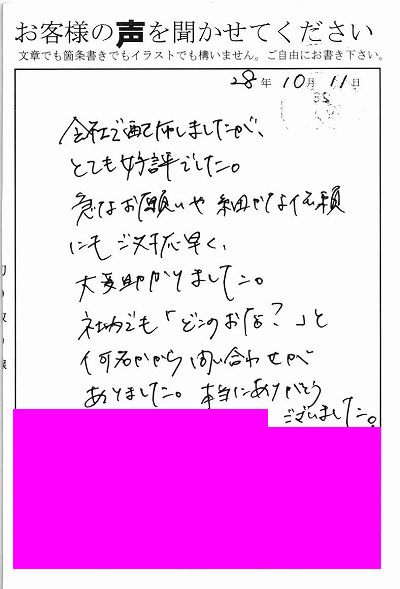 お客様の声を聞かせてください
文章でも箇条書きでもイラストでも構いません。ご自由にお書き下さい。
28年 10月 11日
会社で配布しましたが、
とても好評でした。
急なお願いや細かな依頼
にもご対応早く、
大変助かりました。
社内でも「どこのお店?」と
何名かから問い合わせが
ありました。本当にありがとう
ございました。